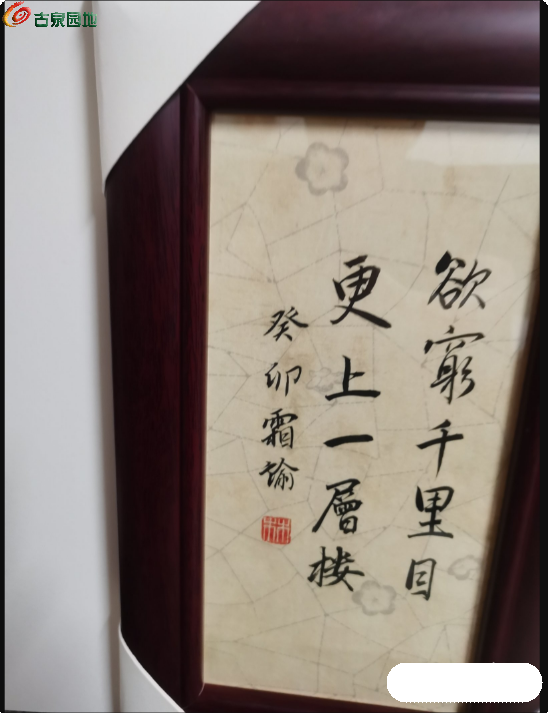 古泉园地
欲窮千里目
更上一層楼
癸卯霜瑜